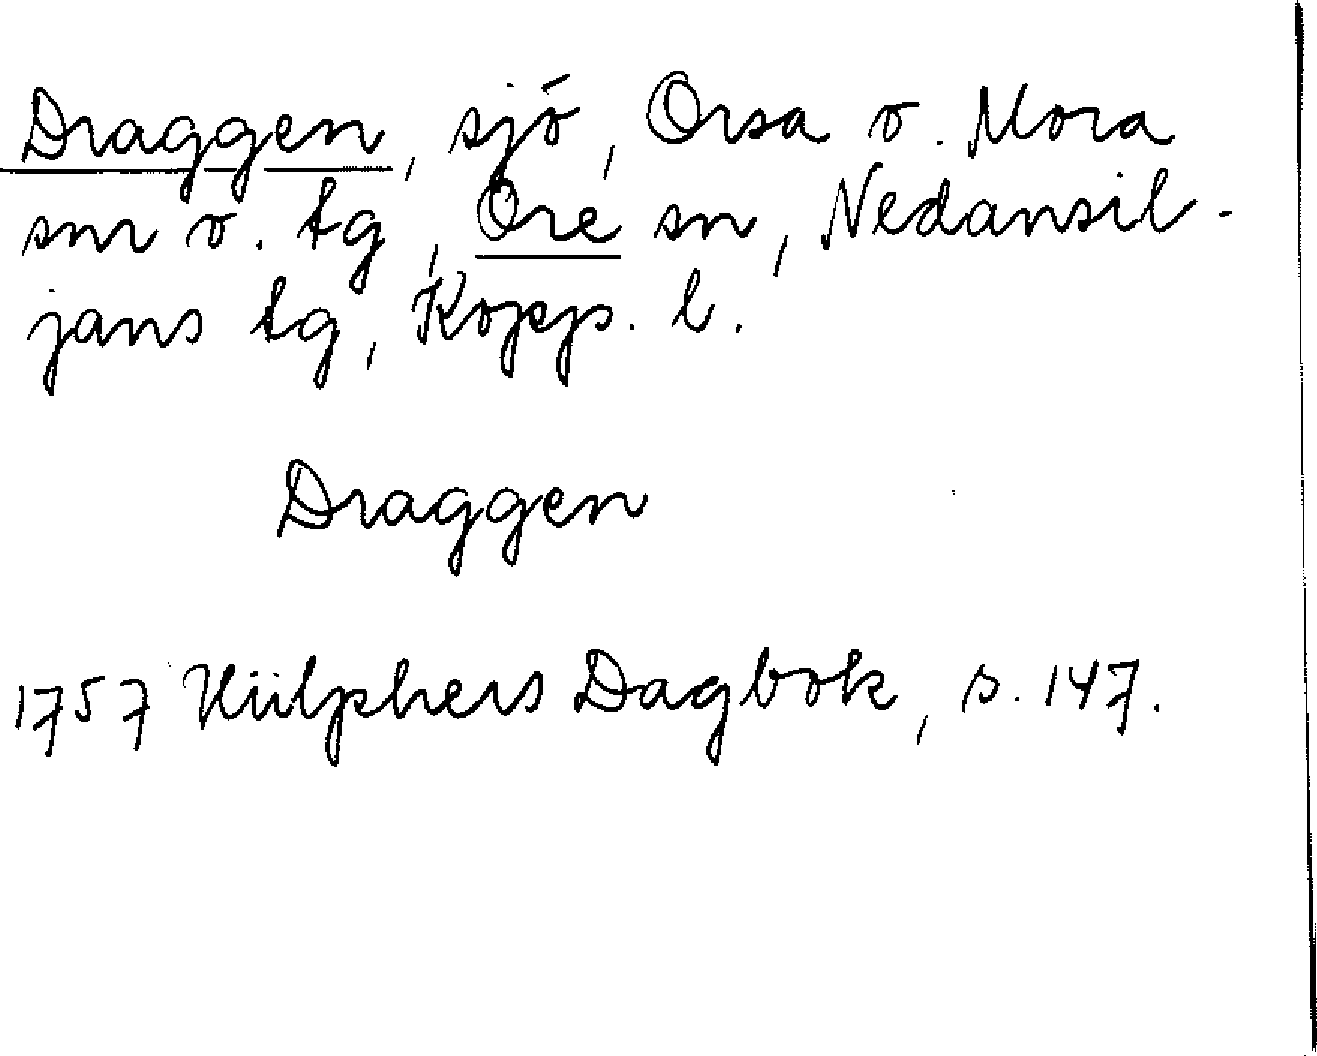 Draggen, sjö, Orsa o. Mora
snr o. tg, Ore sn, Nedansil-
jans tg, Kopp. l.
Draggen
1757 Hülphers Dagbok, s. 147.